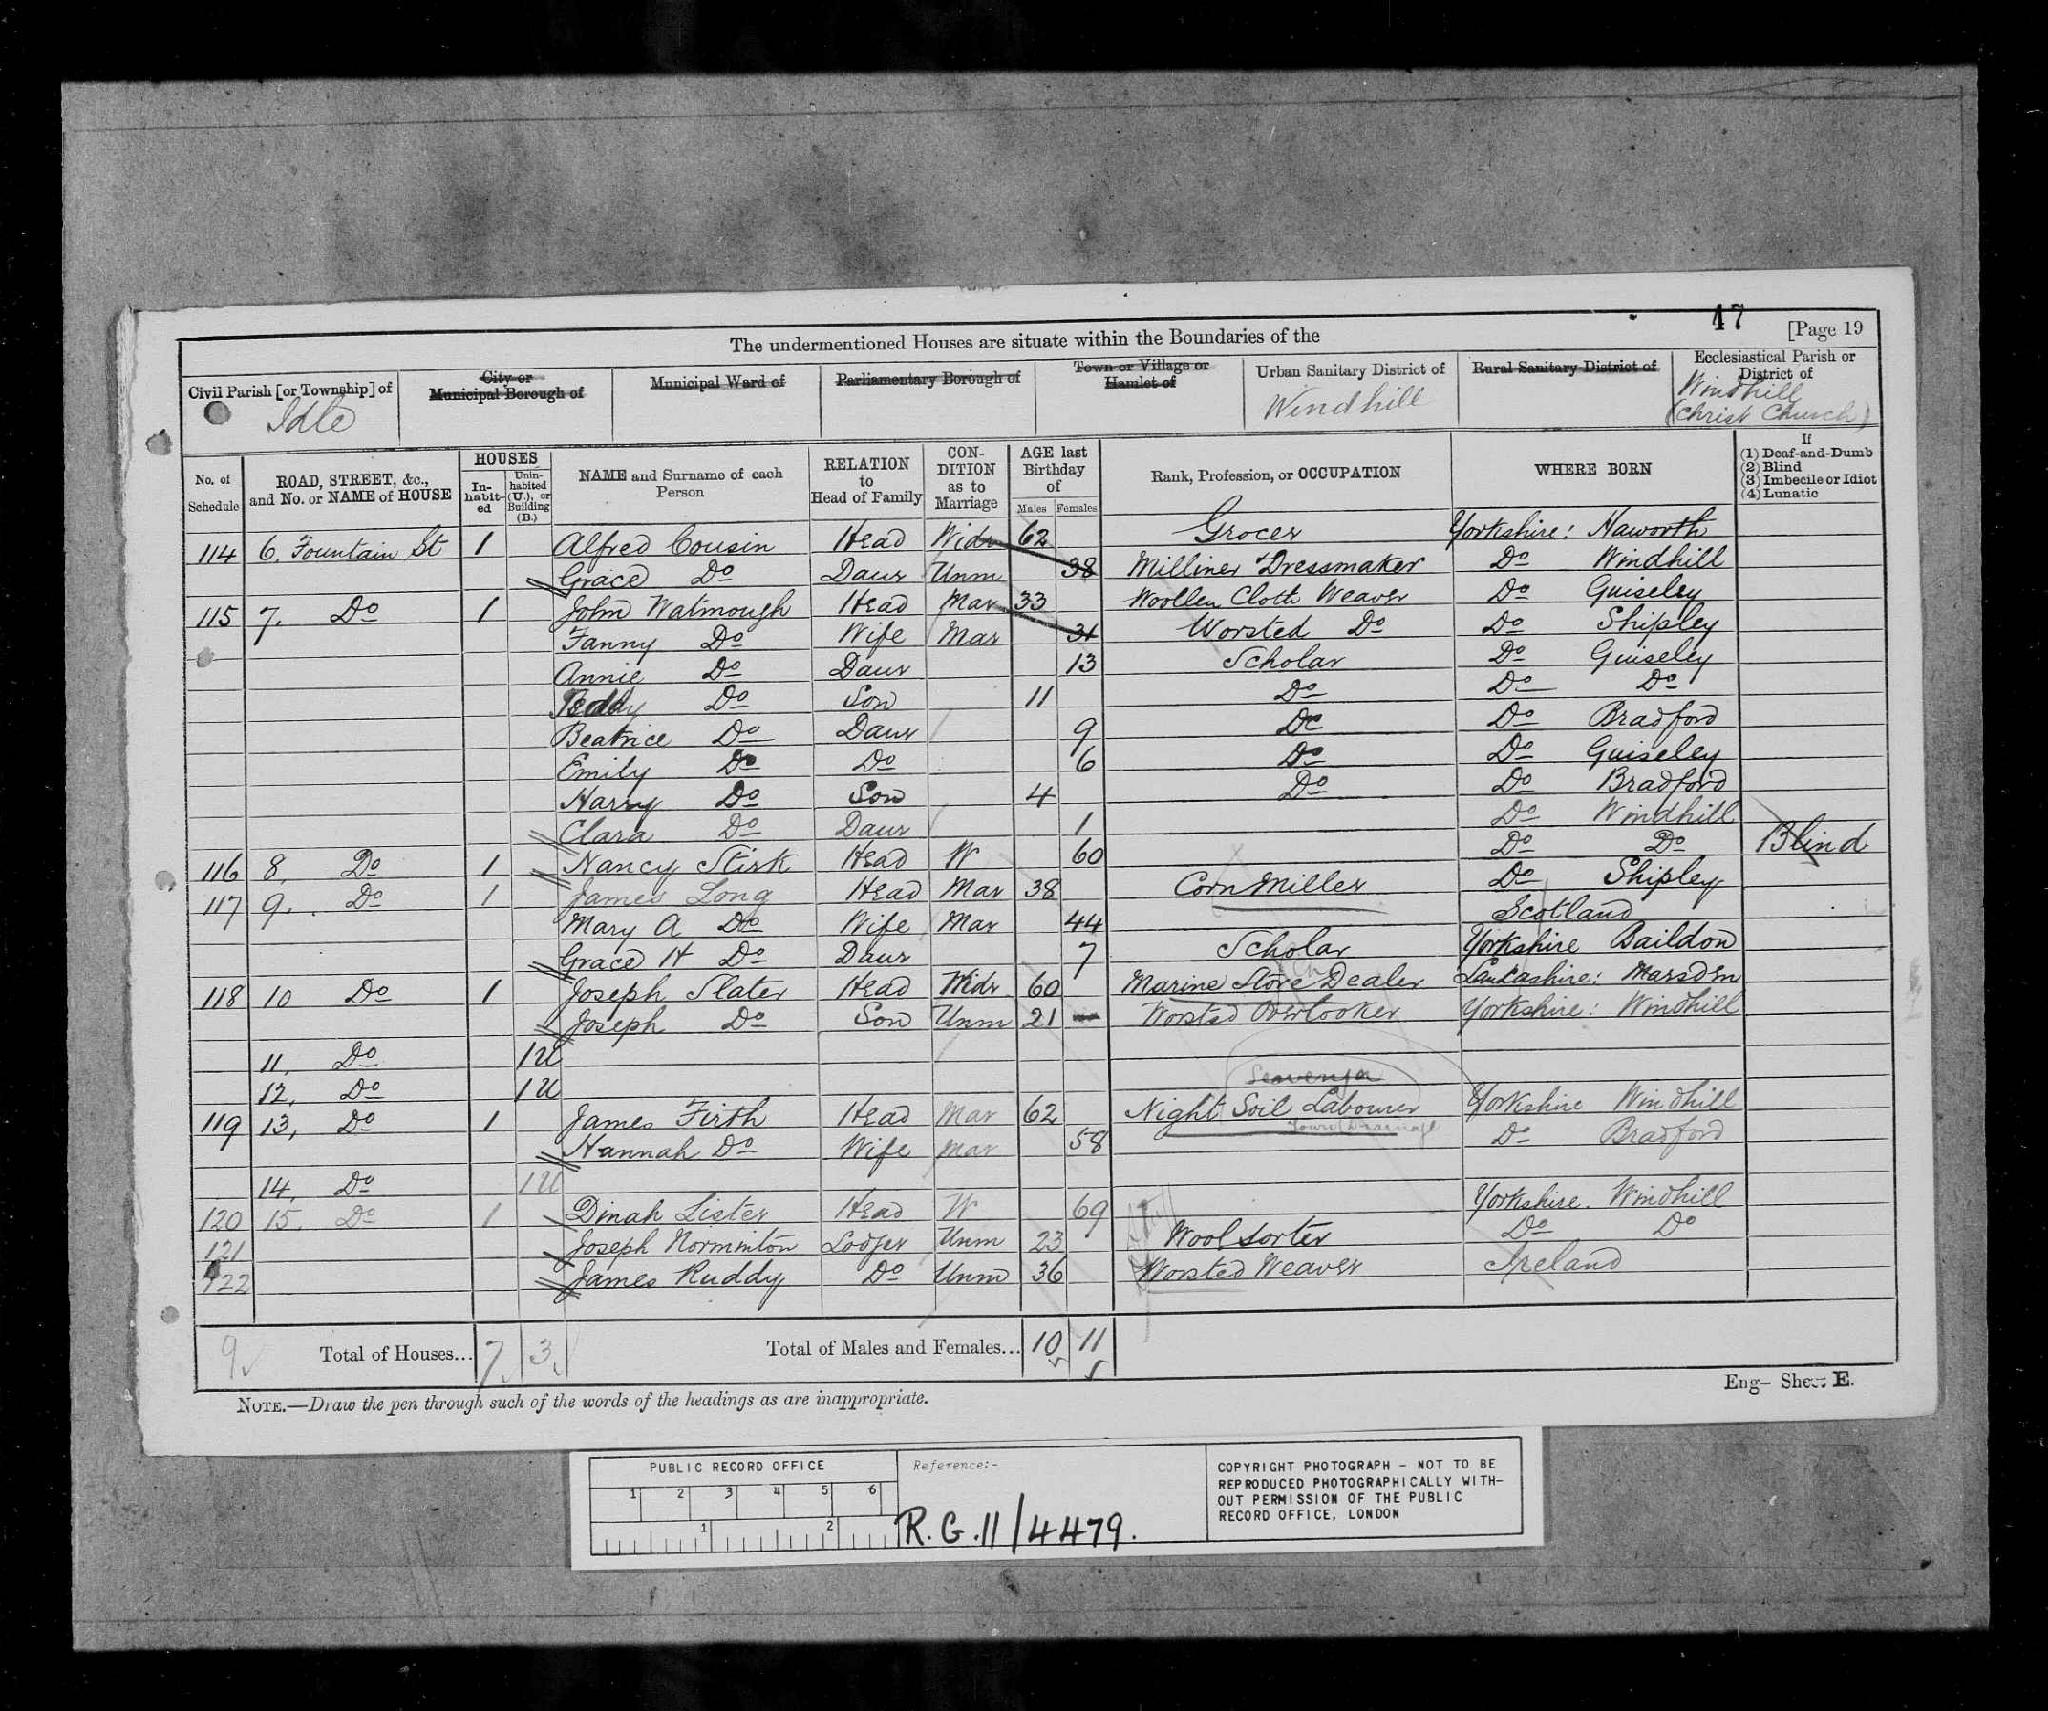 47
[Page 19
The undermentioned Houses are situate within the Boundaries of the
Civil Parish [or Township] of
Idle
City or
Municipal Borough of
Municipal Ward of
Parliamentary Borough of
Town or Village or
Hamlet of
Urban Sanitary District of
Windhill
Rural Sanitary District of
Ecclesiastical Parish or
District of
Windhill
(Christ Church)
No. of
Schedule
ROAD, STREET, &c.,
and No. or NAME of HOUSE
HOUSES
In-
habit-
ed
Unin-
habited
(U.), or
Building
(B.)
NAME and Surname of each
Person
RELATION
to
Head of Family
CON-
DITION
as to
Marriage
AGE last
Birthday
of
Males Females
Rank, Profession, or OCCUPATION
WHERE BORN
If
(1) Deaf-and-Dumb
(2) Blind
(3) Imbecile or Idiot
(4) Lunatic
114 6. Fountain St 1 Alfred Cousin Head Widr 62 Grocer Yorkshire: Haworth
Grace Do Daur Unm 38 Milliner Dressmaker Do Windhill
115 7. Do 1 John Watmough Head Mar 33 Woollen Cloth Weaver Do Guiseley
Fanny Do Wife Mar 31 Worsted Do Do Shipley
Annie Do Daur 13 Scholar Do Guiseley
Do Son 11 Do Do Do
Beatrice Do Daur 9 Do Do Bradford
Emily Do Do 6 Do Do Guiseley
Harry Do Son 4 Do Do Bradford
Clara Do Daur 1 Do Windhill
116 8, Do 1 Nancy Stirk Head W 60 Do Do Blind
117 9. Do 1 James Long Head Mar 38 Corn Miller Do Shipley
Mary A Do Wife Mar 44 Scotland
Grace H Do Daur 7 Scholar Yorkshire Baildon
118 10 Do 1 Joseph Slater Head Widr 60 Marine Store Dealer Lancashire: Marsden
Joseph Do Son Unm 21 Worsted Overlooker Yorkshire: Windhill
11, Do 1U
12, Do 1U
Scavenger
119 13, Do 1 James Firth Head Mar 62 Night Soil Labourer Yorkshire Windhill
Hannah Do Wife Mar 58 Do Bradford
14, Do 1U
120 15. Do 1 Dinah Lister Head W 69 Yorkshire. Windhill
121 Joseph Norminton Lodger Unm 23 Wool Sorter Do Do
122 James Ruddy Do Unm 36 Worsted Weaver Ireland
9 Total of Houses... 7 3 Total of Males and Females... 10 11
Eng- Sheet E.
NOTE.—Draw the pen through such of the words of the headings as are inappropriate.
PUBLIC RECORD OFFICE
1 2 3 4 5 6
1 2
Reference:-
R.G. 11/4479.
COPYRIGHT PHOTOGRAPH - NOT TO BE
REPRODUCED PHOTOGRAPHICALLY WITH-
OUT PERMISSION OF THE PUBLIC
RECORD OFFICE, LONDON